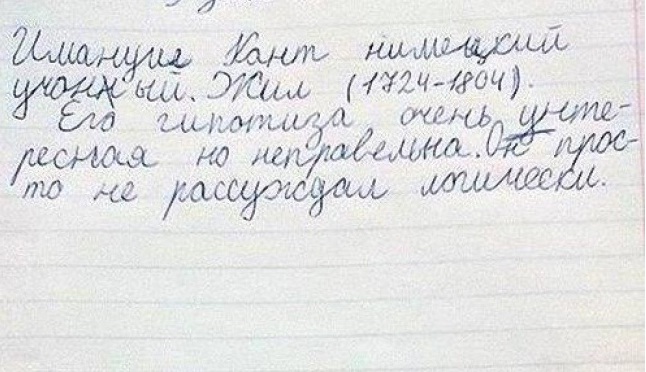 Имануил Кант нимецкий
учоный. Жил (1724-1804).
Его гипотиза очень унте-
ресная но неправельна. Он прос-
то не рассуждал логически.